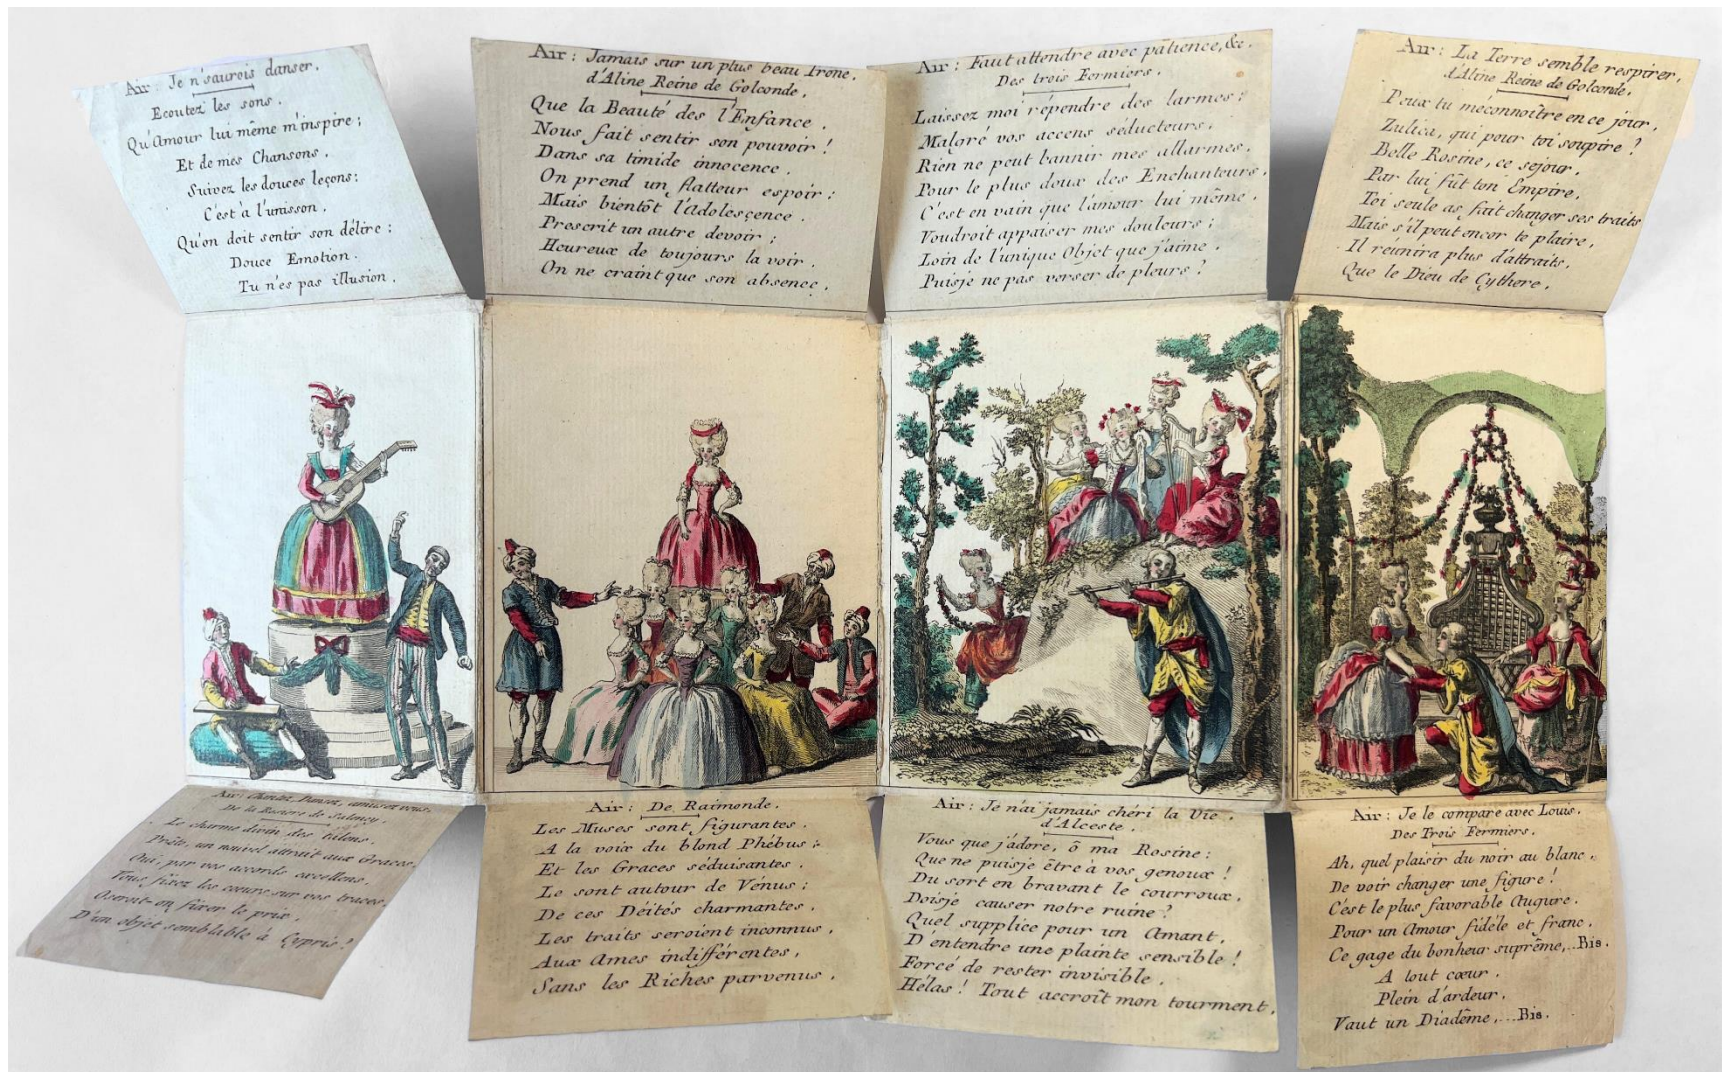 Air: Je n'saurois danser.
Ecoutez les sons.
Qu'Amour lui même m'inspire;
Et de mes Chansons.
Suivez les douces leçons:
C'est à l'unisson.
Qu'on doit sentir son délire:
Douce Emotion.
Tu n'es pas illusion.
Air: Jamais sur un plus beau Trone.
d'Aline Reine de Golconde.
Que la Beauté des l'Enfance.
Nous fait sentir son pouvoir!
Dans sa timide innocence.
On prend un flatteur espoir:
Mais bientôt l'adolesçence.
Prescrit un autre devoir;
Heureux de toujours la voir.
On ne craint que son absence.
Air: Faut attendre avec patience, &c.
Des trois Fermiers.
Laissez moi répendre des larmes:
Malgré vos accens séducteurs.
Rien ne peut bannir mes allarmes.
Pour le plus doux des Enchanteurs.
C'est en vain que l'amour lui même.
Voudroit appaiser mes douleurs;
Loin de l'unique Objet que j'aime.
Puisje ne pas verser de pleurs?
Air: La Terre semble respirer.
d'Aline Reine de Golconde.
Peux tu méconnoître en ce jour.
Zulica, qui pour toi soupire?
Belle Rosine, ce sejour.
Par lui fût ton Empire.
Toi seule as fait changer ses traits
Mais s'il peut encor te plaire,
Il réunira plus d'attraits.
Que le Dieu de Cythere.
Air: Chantez, Dansez, amusez vous.
De la Rosiere de Salency.
Le charme divin des talens.
Prête un nouvel attrait aux Graces.
Oui, par vos accords excellens.
Vous fixez les cœurs sur vos traces.
Oserait-on fixer le prix.
D'un objet semblable à Cypris?
Air: De Raimonde.
Les Muses sont figurantes.
A la voix du blond Phébus;
Et les Graces séduisantes.
Le sont autour de Vénus:
De ces Déités charmantes.
Les traits seroient inconnus.
Aux Ames indifférentes,
Sans les Riches parvenus.
Air: Je n'ai jamais chéri la Vie.
d'Alceste.
Vous que j'adore, ô ma Rosine:
Que ne puisje être à vos genoux!
Du sort en bravant le courroux.
Doisje causer notre ruine?
Quel supplice pour un Amant,
D'entendre une plainte sensible!
Forcé de rester invisible.
Hélas! Tout accroît mon tourment.
Air: Je le compare avec Louis.
Des Trois Fermiers.
Ah, quel plaisir du noir au blanc.
De voir changer une figure!
C'est le plus favorable Augure.
Pour un Amour fidéle et franc.
Ce gage du bonheur suprême,...Bis.
A tout cœur.
Plein d'ardeur.
Vaut un Diadême,...Bis.